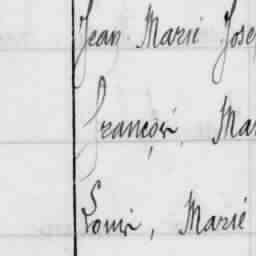 Jean Marie Jose
François, Mar
Louis, Marie